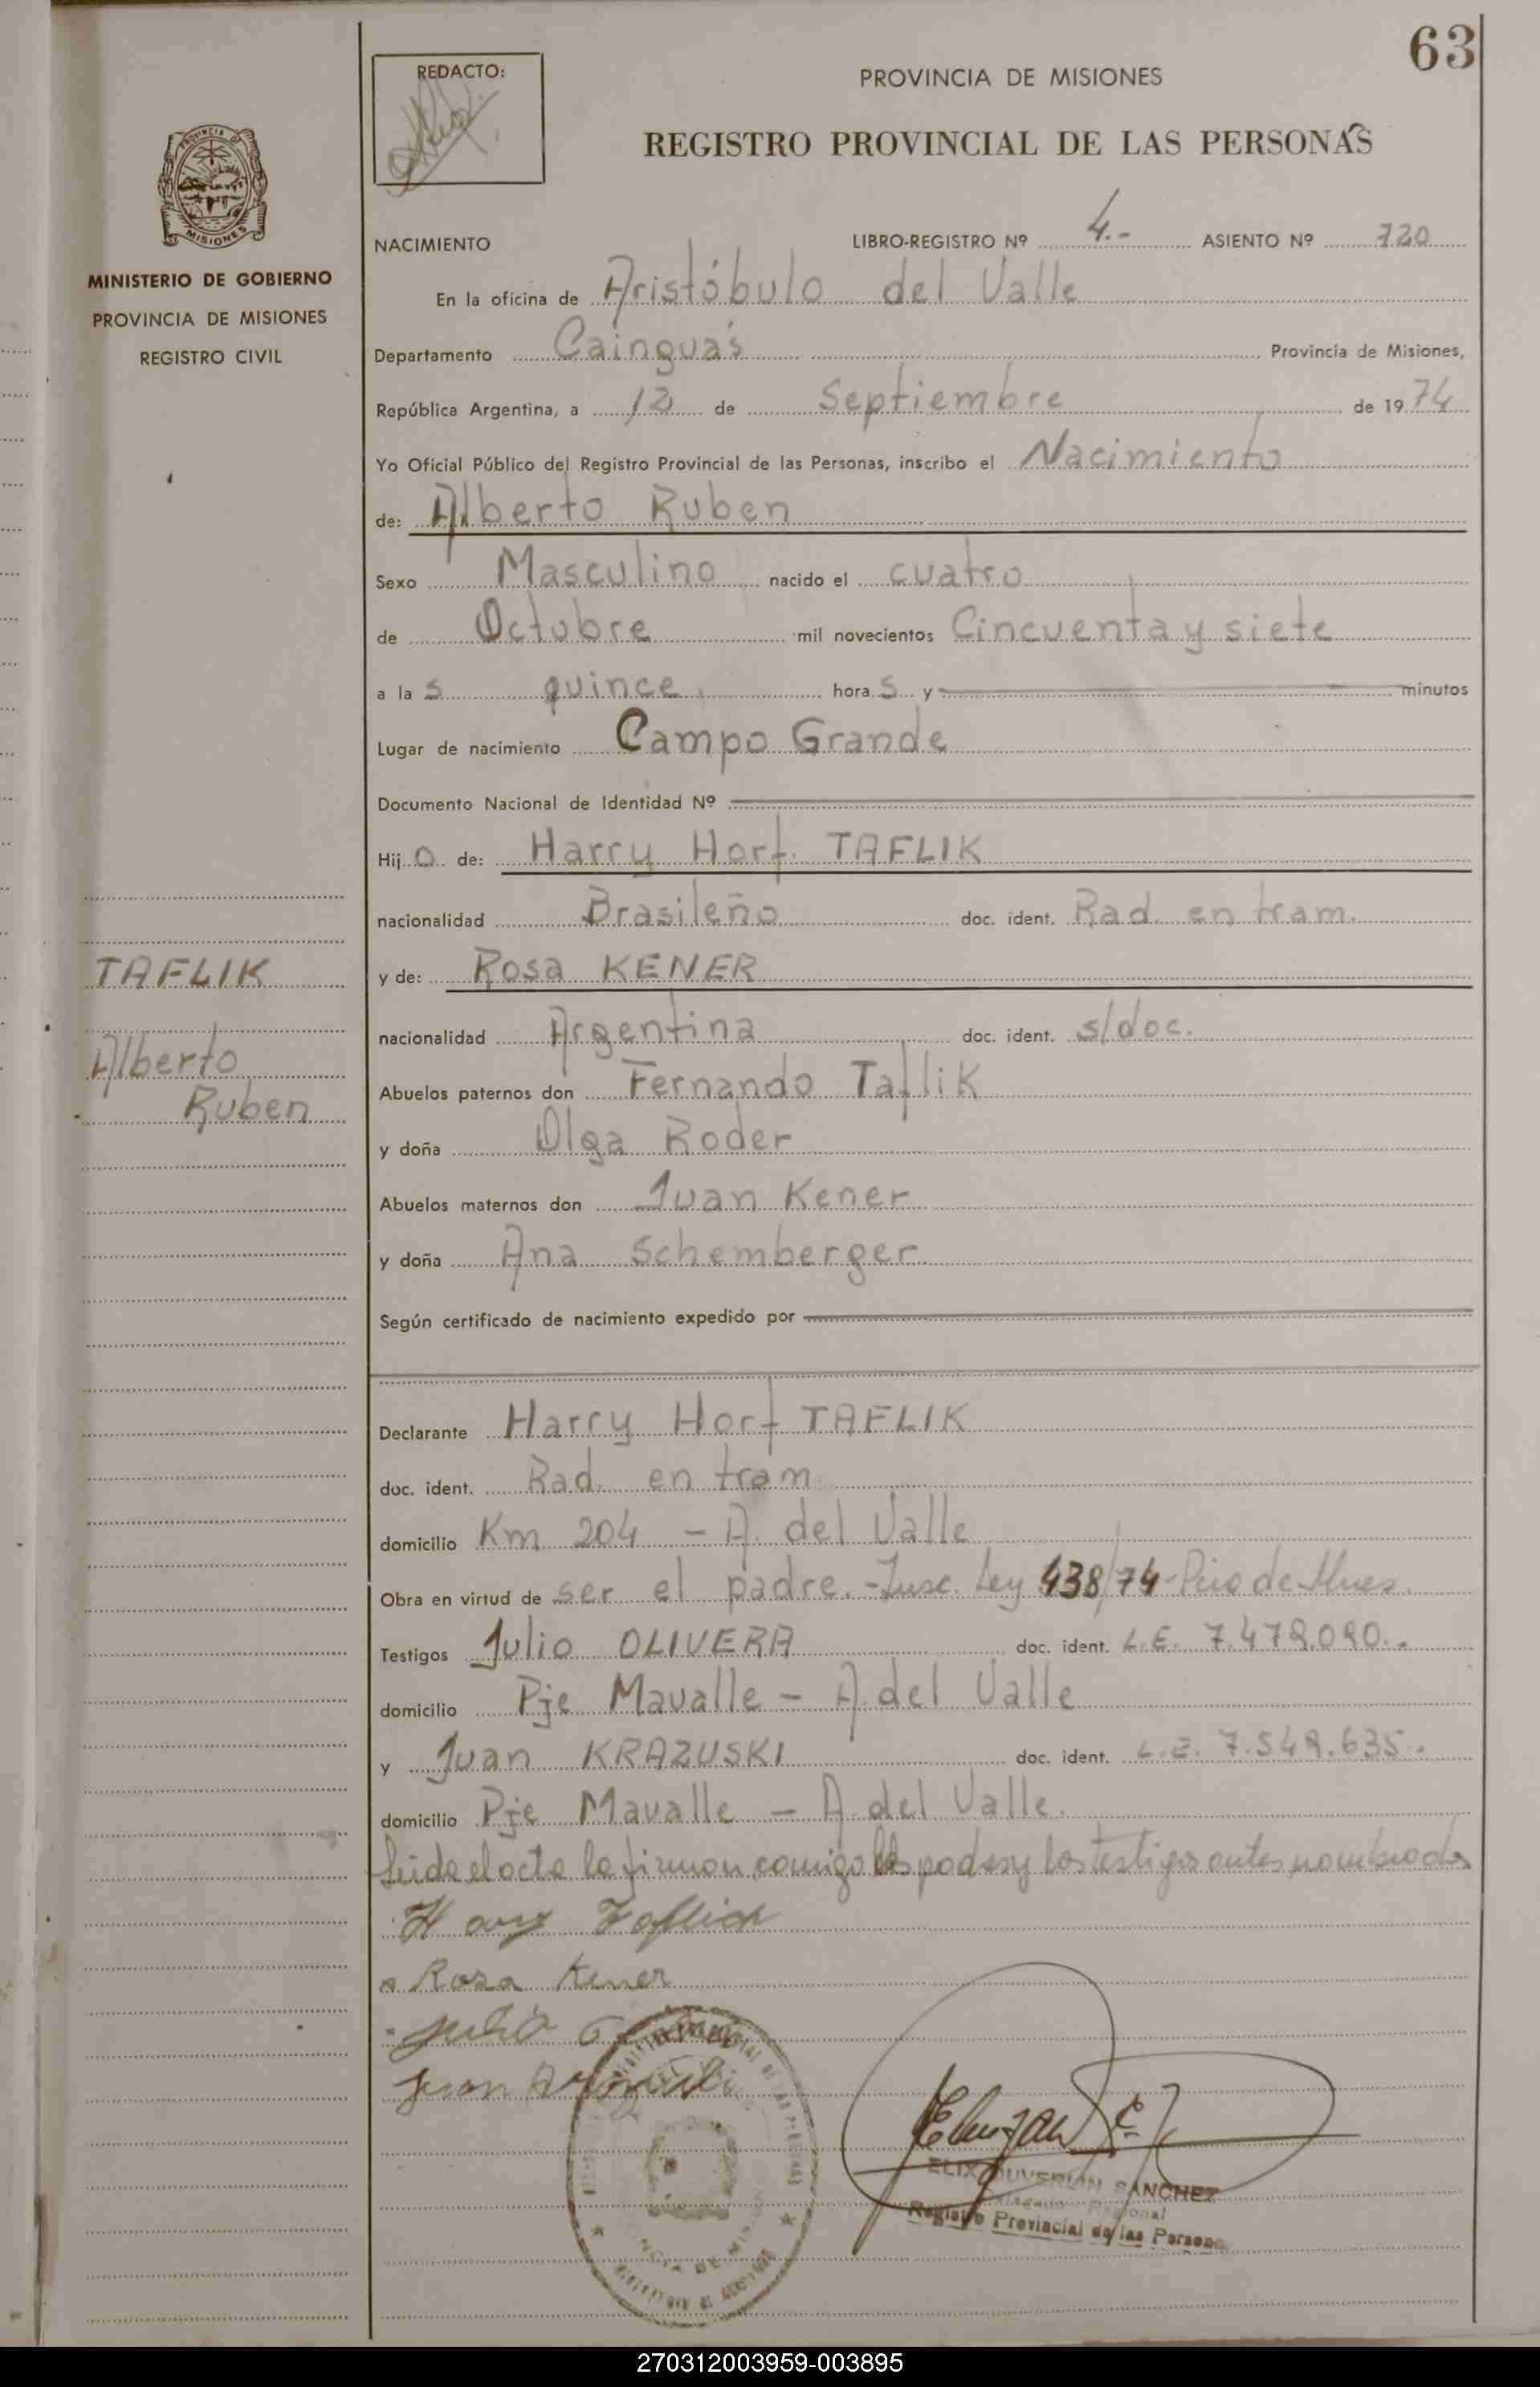 63
REDACTO:
PROVINCIA DE MISIONES
REGISTRO PROVINCIAL DE LAS PERSONAS
PROVINCIA DE
MISIONES
MINISTERIO DE GOBIERNO
PROVINCIA DE MISIONES
REGISTRO CIVIL
NACIMIENTO LIBRO-REGISTRO Nº 4.- ASIENTO Nº 720
En la oficina de Aristóbulo del Valle
Departamento Cainguás Provincia de Misiones,
República Argentina, a 12 de Septiembre de 1974
Yo Oficial Público del Registro Provincial de las Personas, inscribo el Nacimiento
de: Alberto Ruben
Sexo Masculino nacido el cuatro
de Octubre mil novecientos Cincuenta y siete
a la s quince hora s y minutos
Lugar de nacimiento Campo Grande
Documento Nacional de Identidad Nº
Hij o de: Harry Horf TAFLIK
nacionalidad Brasileño doc. ident. Rad. en tram.
TAFLIK
y de: Rosa KENER
nacionalidad Argentina doc. ident. s/doc.
Alberto
Ruben
Abuelos paternos don Fernando TafliK
y doña Olga Roder
Abuelos maternos don Juan Kener
y doña Ana Schemberger
Según certificado de nacimiento expedido por
Declarante Harry Horf TAFLIK
doc. ident. Rad. en tram
domicilio Km 204 - A. del Valle
Obra en virtud de ser el padre.-Insc. Ley 438/74-
Testigos Julio OLIVERA doc. ident. L.E. 7.479.090.
domicilio Pje Mavalle - A. del Valle
y Juan KRAZUSKI doc. ident. L.E. 7.549.635.
domicilio Pje Mavalle - A. del Valle.
Leida el acta la firman comigo los padres y los testigos antes nombrados
Harry Taflick
Rosa Kener
Julio
Juan
SANCHEZ
Registro Provincial de las Personas
270312003959-003895